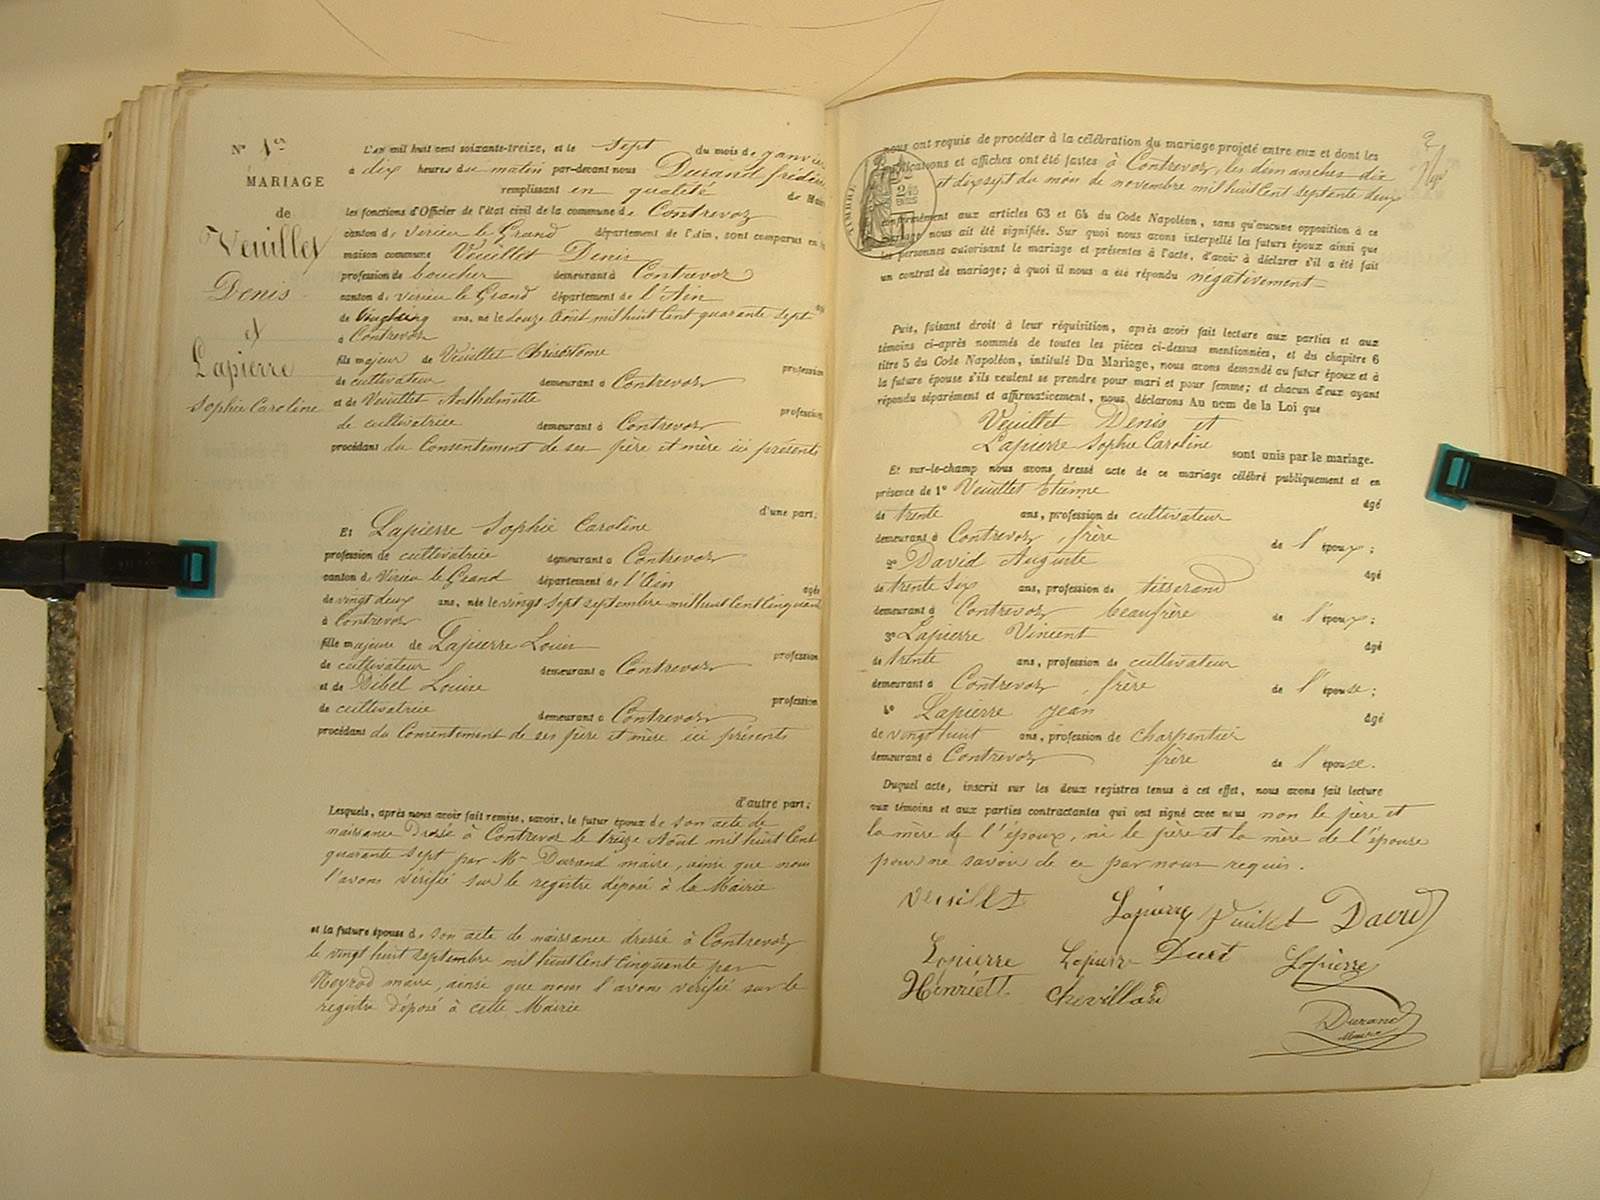 N° 1er
MARIAGE
de
Veuillet
Denis
et
Lapierre
Sophie Caroline
L'AN mil huit cent soixante-treize, et le sept du mois de janvier
à dix heures du matin par-devant nous Durand frédéric
remplissant en qualité de Maire
les fonctions d'Officier de l'état civil de la commune de Contrevoz
canton de Virieu le Grand département de l'Ain, sont comparus en la
maison commune Veuillet Denis
profession de boucher demeurant à Contrevoz
canton de Virieu le Grand département de l'Ain âgé
de vingt cinq ans, né le douze Août mil huit cent quarante sept
à Contrevoz
fils majeur de Veuillet Chrisostôme profession
de cultivateur demeurant à Contrevoz
et de Veuillet Anthelmette profession
de cultivatrice demeurant à Contrevoz
procédant du Consentement de ses père et mère ici présents
d'une part;
Et Lapierre Sophie Caroline
profession de cultivatrice demeurant à Contrevoz
canton de Virieu le Grand département de l'Ain âgée
de vingt deux ans, née le vingt sept septembre mil huit cent cinquante
à Contrevoz
fille majeure de Lapierre Louis profession
de cultivateur demeurant à Contrevoz
et de Bibel Louise profession
de cultivatrice demeurant à Contrevoz
procédant du Consentement de ses père et mère ici présents
d'autre part;
Lesquels, après nous avoir fait remise, savoir, le futur époux de son acte de
naissance Dressé à Contrevoz le treize Août mil huit Cent
quarante sept par Mr Durand maire, ainsi que nous
l'avons vérifié sur le registre déposé à la Mairie
et la future épouse de son acte de naissance dressé à Contrevoz
le vingt huit septembre mil huit Cent Cinquante par
Neyrod maire, ainsi que nous l'avons vérifié sur le
registre déposé à cette Mairie
2
nous ont requis de procéder à la célébration du mariage projeté entre eux et dont les
publications et affiches ont été faites à Contrevoz, les dimanches dix
et dix sept du mois de novembre mil huit Cent septante deux
TIMBRE
conformément aux articles 63 et 64 du Code Napoléon, sans qu'aucune opposition à ce
mariage nous ait été signifiée. Sur quoi nous avons interpellé les futurs époux ainsi que
les personnes autorisant le mariage et présentes à l'acte, d'avoir à déclarer s'il a été fait
un contrat de mariage; à quoi il nous a été répondu négativement
Puis, faisant droit à leur réquisition, après avoir fait lecture aux parties et aux
témoins ci-après nommés de toutes les pièces ci-dessus mentionnées, et du chapitre 6
titre 5 du Code Napoléon, intitulé Du Mariage, nous avons demandé au futur époux et à
la future épouse s'ils veulent se prendre pour mari et pour femme; et chacun d'eux ayant
répondu séparément et affirmativement, nous déclarons Au nom de la Loi que
Veuillet Denis et
Lapierre Sophie Caroline sont unis par le mariage.
Et sur-le-champ nous avons dressé acte de ce mariage célébré publiquement et en
présence de 1° Veuillet Etienne âgé
de trente ans, profession de cultivateur
demeurant à Contrevoz, frère de l'époux;
2° David Auguste âgé
de trente six ans, profession de tisserand
demeurant à Contrevoz beaufrère de l'époux;
3° Lapierre Vincent âgé
de trente ans, profession de cultivateur
demeurant à Contrevoz, frère de l'épouse;
4° Lapierre Jean âgé
de vingt huit ans, profession de charpentier
demeurant à Contrevoz frère de l'épouse.
Duquel acte, inscrit sur les deux registres tenus à cet effet, nous avons fait lecture
aux témoins et aux parties contractantes qui ont signé avec nous non le père et
la mère de l'époux, ni le père et la mère de l'épouse
pour ne savoir de ce par nous requis.
Veuillet Lapierre Veuillet David
Lapierre Lapierre Lapierre
Henriett Chevillard
Durand
Maire